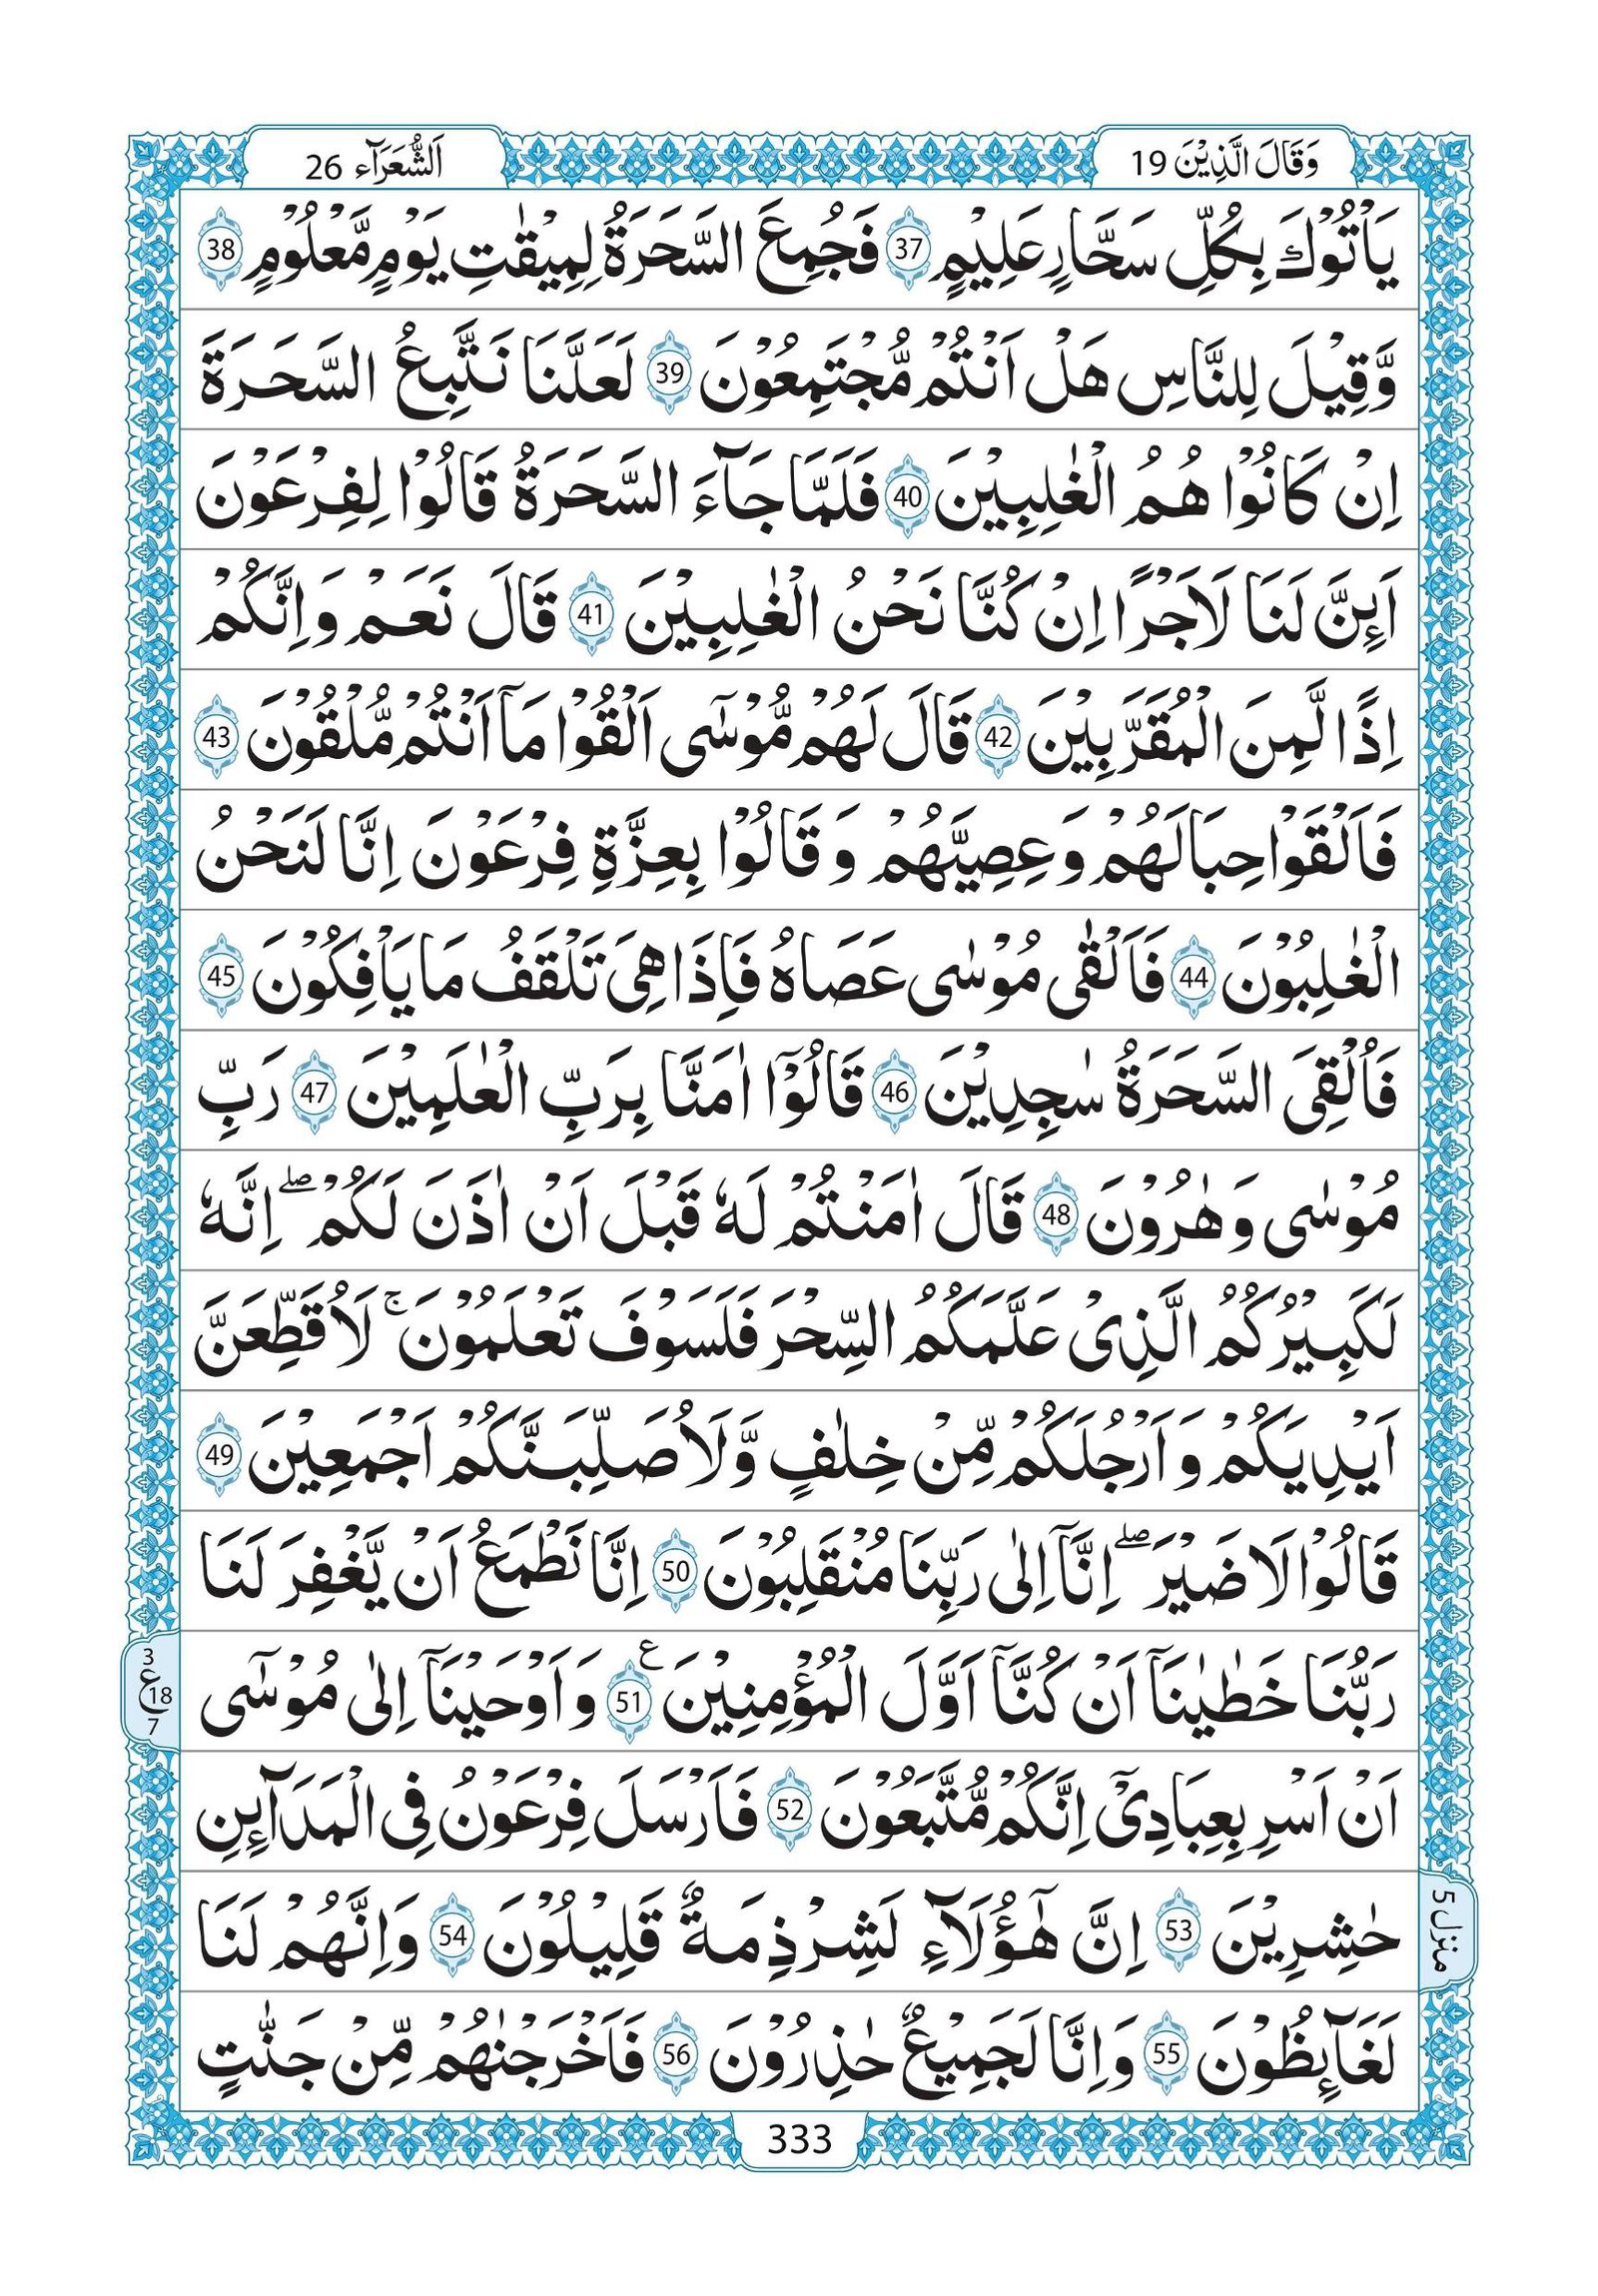 وَقَالَ الَّذِيْنَ 19
اَلشُّعَرَآء 26
يَاْتُوْكَ بِكُلِّ سَحَّارٍ عَلِيْمٍ 37 فَجُمِعَ السَّحَرَةُ لِمِيْقٰتِ يَوْمٍ مَّعْلُوْمٍ 38
وَّقِيْلَ لِلنَّاسِ هَلْ اَنْتُمْ مُّجْتَمِعُوْنَ 39 لَعَلَّنَا نَتَّبِعُ السَّحَرَةَ
اِنْ كَانُوْا هُمُ الْغٰلِبِيْنَ 40 فَلَمَّا جَآءَ السَّحَرَةُ قَالُوْا لِفِرْعَوْنَ
اَئِنَّ لَنَا لَاَجْرًا اِنْ كُنَّا نَحْنُ الْغٰلِبِيْنَ 41 قَالَ نَعَمْ وَاِنَّكُمْ
اِذًا لَّمِنَ الْمُقَرَّبِيْنَ 42 قَالَ لَهُمْ مُّوْسٰٓى اَلْقُوْا مَاۤ اَنْتُمْ مُّلْقُوْنَ 43
فَاَلْقَوْا حِبَالَهُمْ وَعِصِيَّهُمْ وَقَالُوْا بِعِزَّةِ فِرْعَوْنَ اِنَّا لَنَحْنُ
الْغٰلِبُوْنَ 44 فَاَلْقٰى مُوْسٰى عَصَاهُ فَاِذَا هِىَ تَلْقَفُ مَا يَاْفِكُوْنَ 45
فَاُلْقِىَ السَّحَرَةُ سٰجِدِيْنَ 46 قَالُوْۤا اٰمَنَّا بِرَبِّ الْعٰلَمِيْنَ 47 رَبِّ
مُوْسٰى وَهٰرُوْنَ 48 قَالَ اٰمَنْتُمْ لَهٗ قَبْلَ اَنْ اٰذَنَ لَكُمْ ۖ اِنَّهٗ
لَكَبِيْرُكُمُ الَّذِىْ عَلَّمَكُمُ السِّحْرَ فَلَسَوْفَ تَعْلَمُوْنَ ۚ لَاُقَطِّعَنَّ
اَيْدِيَكُمْ وَاَرْجُلَكُمْ مِّنْ خِلٰفٍ وَّلَاُصَلِّبَنَّكُمْ اَجْمَعِيْنَ 49
قَالُوْا لَا ضَيْرَ ۖ اِنَّاۤ اِلٰى رَبِّنَا مُنْقَلِبُوْنَ 50 اِنَّا نَطْمَعُ اَنْ يَّغْفِرَ لَنَا
رَبُّنَا خَطٰيٰنَاۤ اَنْ كُنَّاۤ اَوَّلَ الْمُؤْمِنِيْنَ ع 51 وَاَوْحَيْنَاۤ اِلٰى مُوْسٰٓى
3
ع 18
7
اَنْ اَسْرِ بِعِبَادِىْۤ اِنَّكُمْ مُّتَّبَعُوْنَ 52 فَاَرْسَلَ فِرْعَوْنُ فِى الْمَدَآئِنِ
حٰشِرِيْنَ 53 اِنَّ هٰٓؤُلَآءِ لَشِرْذِمَةٌ قَلِيْلُوْنَ 54 وَاِنَّهُمْ لَنَا
منزل 5
لَغَآئِظُوْنَ 55 وَاِنَّا لَجَمِيْعٌ حٰذِرُوْنَ 56 فَاَخْرَجْنٰهُمْ مِّنْ جَنّٰتٍ
333